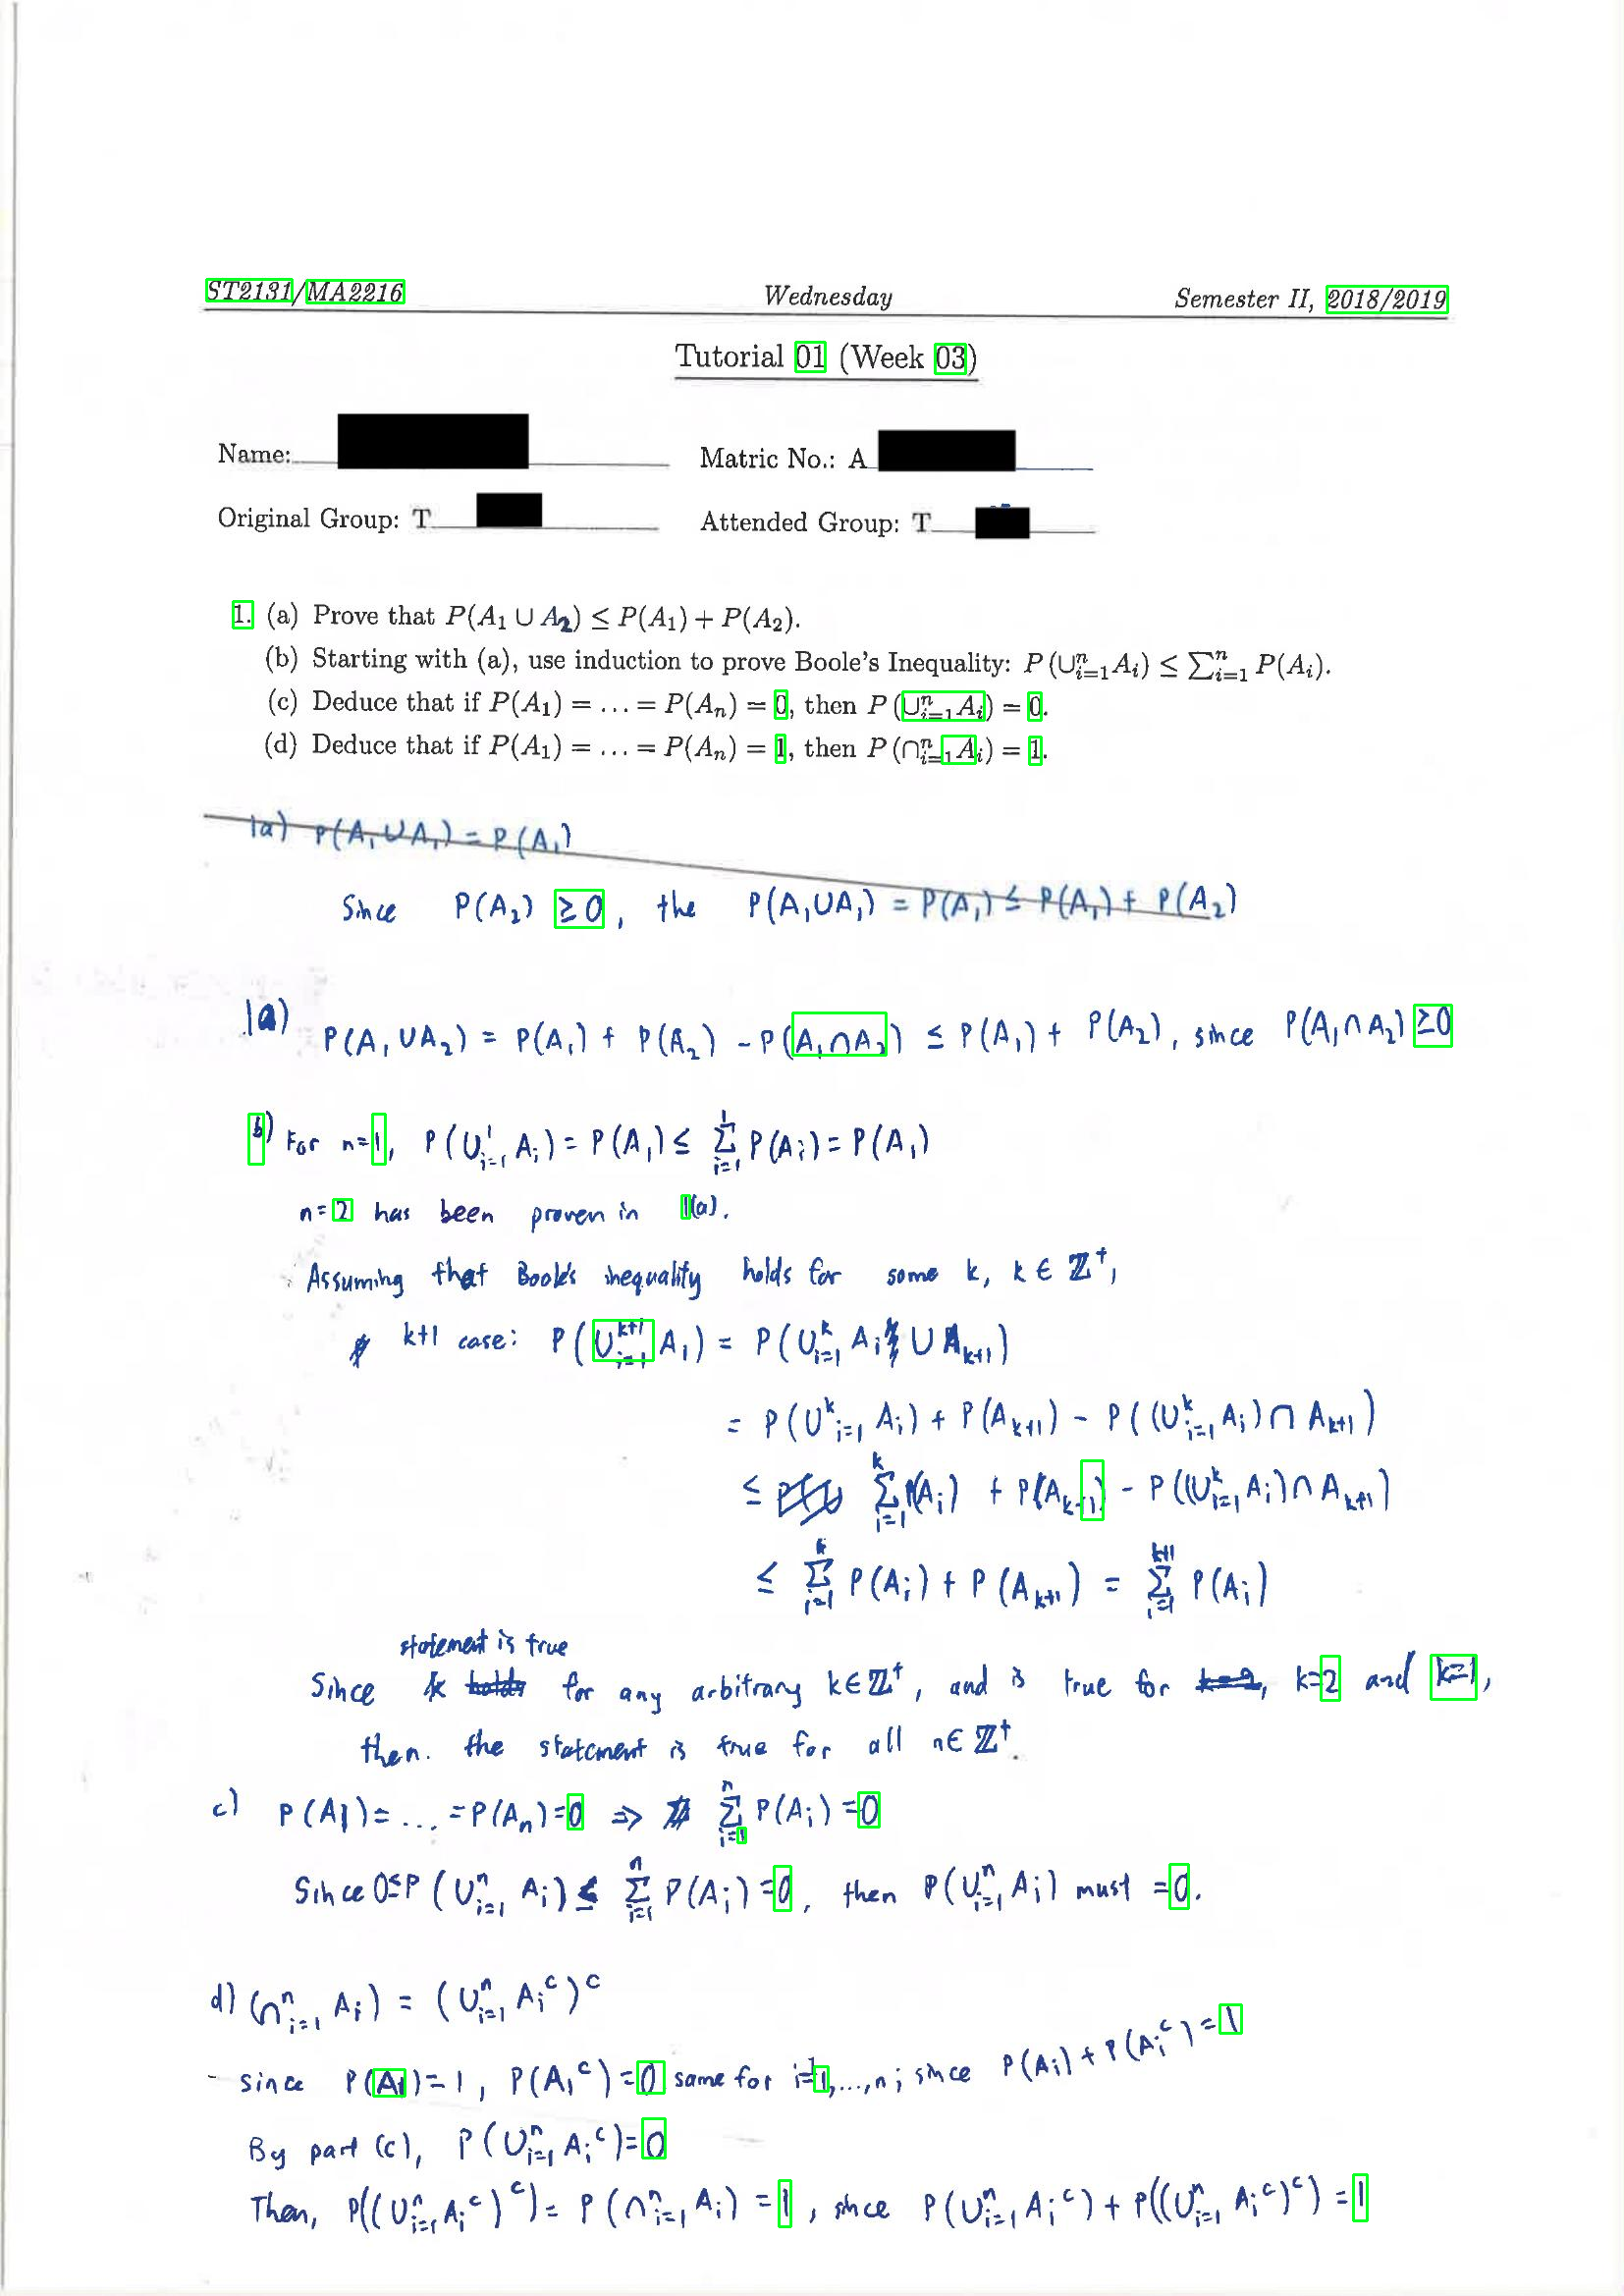 ST2131/MA2216 Wednesday Semester II, 2018/2019
Tutorial 01 (Week 03)
Name: Matric No.: A
Original Group: T Attended Group: T
1. (a) Prove that P(A₁ ∪ A₂) ≤ P(A₁) + P(A₂).
(b) Starting with (a), use induction to prove Boole's Inequality: P(∪ⁿᵢ₌₁Aᵢ) ≤ ∑ⁿᵢ₌₁ P(Aᵢ).
(c) Deduce that if P(A₁) = … = P(Aₙ) = 0, then P(∪ⁿᵢ₌₁Aᵢ) = 0.
(d) Deduce that if P(A₁) = … = P(Aₙ) = 1, then P(∩ⁿᵢ₌₁Aᵢ) = 1.
1a) P(A₁∪A₁) = P(A₁)
Since P(A₂) ≥0, the P(A₁∪A₁) = P(A₁) ≤ P(A₁) + P(A₂)
1a) P(A₁∪A₂) = P(A₁) + P(A₂) - P(A₁∩A₂) ≤ P(A₁) + P(A₂), since P(A₁∩A₂) ≥0
b) For n=1, P(∪¹ᵢ₌₁ Aᵢ) = P(A₁) ≤ ∑¹ᵢ₌₁ P(Aᵢ) = P(A₁)
n=2 has been proven in 1(a).
Assuming that Boole's inequality holds for some k, k ∈ ℤ⁺,
k+1 case: P(∪ᵏ⁺¹ᵢ₌₁ Aᵢ) = P(∪ᵏᵢ₌₁ Aᵢ ∪ Aₖ₊₁)
= P(∪ᵏᵢ₌₁ Aᵢ) + P(Aₖ₊₁) - P((∪ᵏᵢ₌₁ Aᵢ) ∩ Aₖ₊₁)
≤ ∑ᵏᵢ₌₁ P(Aᵢ) + P(Aₖ₊₁) - P((∪ᵏᵢ₌₁ Aᵢ) ∩ Aₖ₊₁)
≤ ∑ᵏᵢ₌₁ P(Aᵢ) + P(Aₖ₊₁) = ∑ᵏ⁺¹ᵢ₌₁ P(Aᵢ)
statement is true
Since k holds for any arbitrary k∈ℤ⁺, and is true for k=2, k=2 and k=1,
then. the statement is true for all n∈ℤ⁺.
c) P(A1) = … = P(Aₙ) = 0 ⇒ ∑ⁿᵢ₌₁ P(Aᵢ) = 0
Since 0≤P(∪ⁿᵢ₌₁ Aᵢ) ≤ ∑ⁿᵢ₌₁ P(Aᵢ) = 0, then P(∪ⁿᵢ₌₁ Aᵢ) must = 0.
d) (∩ⁿᵢ₌₁ Aᵢ) = (∪ⁿᵢ₌₁ Aᵢᶜ)ᶜ
since P(A₁) = 1, P(A₁ᶜ) = 0 same for i=1,…,n; since P(Aᵢ) + P(Aᵢᶜ) = 1
By part (c), P(∪ⁿᵢ₌₁ Aᵢᶜ) = 0
Then, P((∪ⁿᵢ₌₁ Aᵢᶜ)ᶜ) = P(∩ⁿᵢ₌₁ Aᵢ) = 1, since P(∪ⁿᵢ₌₁ Aᵢᶜ) + P((∪ⁿᵢ₌₁ Aᵢᶜ)ᶜ) = 1